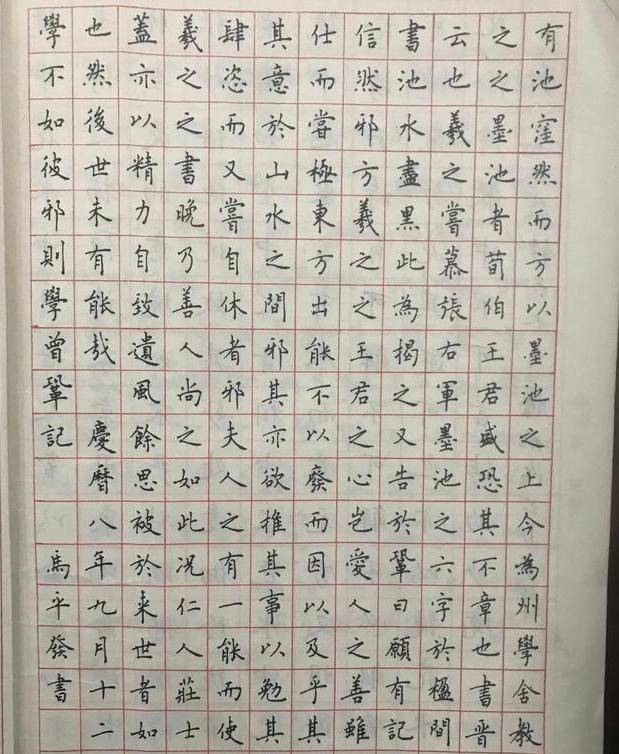 有池窪然而方以墨池之上今為州學舍教
之之墨池者荀伯王君盛恐其不章也書晉
云也羲之嘗慕張右軍墨池之六字於楹間
書池水盡黑此為楬之又告於鞏曰願有記
信然邪方羲之之王君之心豈愛人之善雖
仕而嘗極東方出能不以廢而因以及乎其
其意於山水之間邪其亦欲推其事以勉其
肆恣而又嘗自休者邪夫人之有一能而使
羲之之書晚乃善人尚之如此况仁人莊士
蓋亦以精力自致遺風餘思被於来世者如
也然後世未有能哉 慶曆八年九月十二
學不如彼邪則學曾鞏記 馬平發書